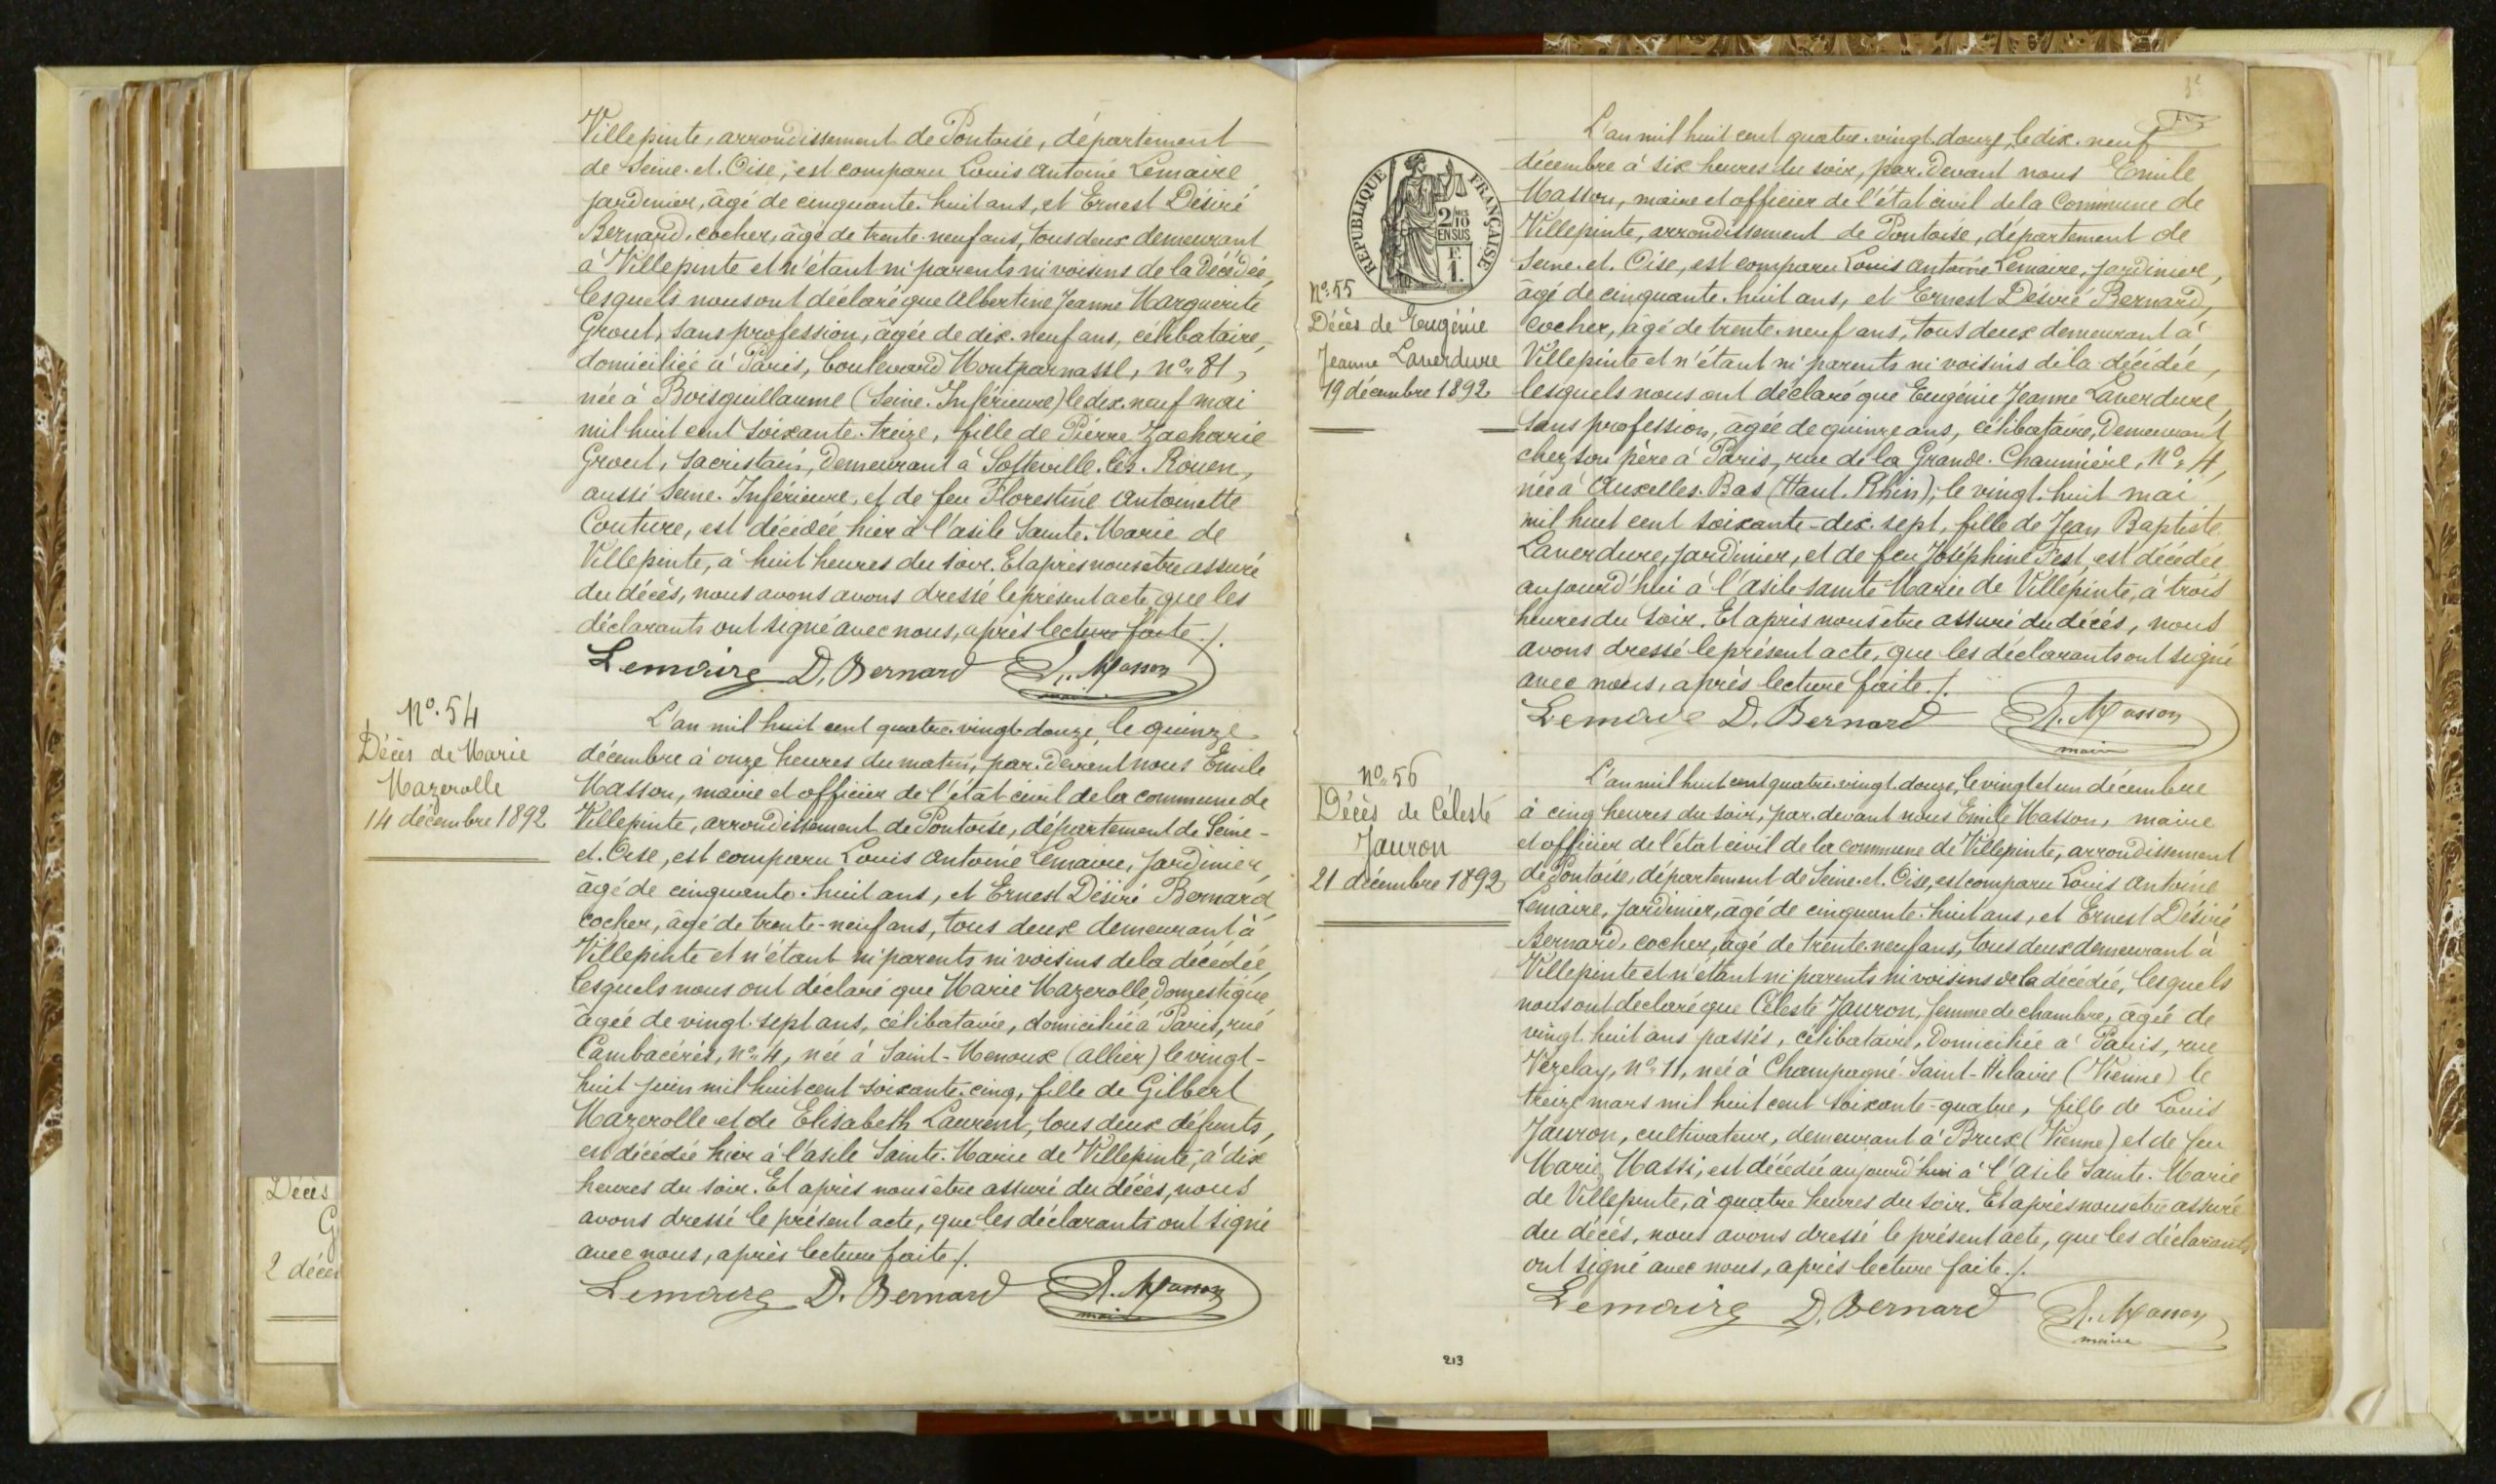 Villepinte, arrondissement de Pontoise, département
de Seine-et-Oise, est comparu Louis Antoine Lemaire
jardinier, âgé de cinquante-huit ans, et Ernest Désiré
Bernard, cocher, âgé de trente-neuf ans, tous deux demeurant
à Villepinte et n'étant ni parents ni voisins de la décédée,
lesquels nous ont déclaré que Albertine Jeanne Marguerite
Grout, sans profession, âgée de dix-neuf ans, célibataire,
domiciliée à Paris, boulevard Montparnasse, n° 81,
née à Boisguillaume (Seine-Inférieure) le dix-neuf mai
mil huit cent soixante-treize, fille de Pierre Zacharie
Grout, sacristain, demeurant à Sotteville-lès-Rouen,
aussi Seine-Inférieure, et de feu Florestine Antoinette
Couture, est décédée hier à l'asile Sainte-Marie de
Villepinte, à huit heures du soir. Et après nous être assuré
du décès, nous avons avons dressé le présent acte, que les
déclarants ont signé avec nous, après lecture faite./.
Lemaire D. Bernard E. Masson
maire
N° 54
Décès de Marie
Mazerolle
14 décembre 1892
L'an mil huit cent quatre-vingt-douze, le quinze
décembre à onze heures du matin, par-devant nous Emile
Masson, maire et officier de l'état civil de la commune de
Villepinte, arrondissement de Pontoise, département de Seine-
et-Oise, est comparu Louis Antoine Lemaire, jardinier,
âgé de cinquante-huit ans, et Ernest Désiré Bernard,
cocher, âgé de trente-neuf ans, tous deux demeurant à
Villepinte et n'étant ni parents ni voisins de la décédée,
lesquels nous ont déclaré que Marie Mazerolle, domestique,
âgée de vingt-sept ans, célibataire, domiciliée à Paris, rue
Cambacérès, n° 4, née à Saint-Menoux (Allier) le vingt-
huit juin mil huit cent soixante-cinq, fille de Gilbert
Mazerolle et de Elisabeth Laurent, tous deux défunts,
est décédée hier à l'asile Sainte-Marie de Villepinte, à dix
heures du soir. Et après nous être assuré du décès, nous
avons dressé le présent acte, que les déclarants ont signé
avec nous, après lecture faite./.
Lemaire D. Bernard E. Masson
maire
Décès
G
2 décem
RÉPUBLIQUE FRANÇAISE
2/10 EN SUS
F. 1.
N° 55
Décès de Eugénie
Jeanne Laverdure
19 décembre 1892
L'an mil huit cent quatre-vingt-douze, le dix-neuf
décembre à six heures du soir, par-devant nous Emile
Masson, maire et officier de l'état civil de la Commune de
Villepinte, arrondissement de Pontoise, département de
Seine-et-Oise, est comparu Louis Antoine Lemaire, jardinier,
âgé de cinquante-huit ans, et Ernest Désiré Bernard,
cocher, âgé de trente-neuf ans, tous deux demeurant à
Villepinte et n'étant ni parents ni voisins de la décédée,
lesquels nous ont déclaré que Eugénie Jeanne Laverdure,
sans profession, âgée de quinze ans, célibataire, demeurant
chez son père à Paris, rue de la Grande-Chaumière, n° 4,
née à Auxelles-Bas (Haut-Rhin), le vingt-huit mai
mil huit cent soixante-dix-sept, fille de Jean Baptiste
Laverdure, jardinier, et de feu Joséphine Fest, est décédée
aujourd'hui à l'asile sainte Marie de Villepinte, à trois
heures du soir. Et après nous être assuré du décès, nous
avons dressé le présent acte, que les déclarants ont signé
avec nous, après lecture faite./.
Lemaire D. Bernard E. Masson
maire
N° 56
Décès de Céleste
Jauron
21 décembre 1892
L'an mil huit cent quatre-vingt-douze, le vingt et un décembre
à cinq heures du soir, par-devant nous Emile Masson, maire
et officier de l'état civil de la commune de Villepinte, arrondissement
de Pontoise, département de Seine-et-Oise, est comparu Louis Antoine
Lemaire, jardinier, âgé de cinquante-huit ans, et Ernest Désiré
Bernard, cocher, âgé de trente-neuf ans, tous deux demeurant à
Villepinte et n'étant ni parents ni voisins de la décédée, lesquels
nous ont déclaré que Céleste Jauron, femme de chambre, âgée de
vingt-huit ans passés, célibataire, domiciliée à Paris, rue
Vézelay, n° 11, née à Champagné-Saint-Hilaire (Vienne) le
treize mars mil huit cent soixante-quatre, fille de Louis
Jauron, cultivateur, demeurant à Brux (Vienne) et de feu
Marie Massi, est décédée aujourd'hui à l'asile Sainte-Marie
de Villepinte, à quatre heures du soir. Et après nous être assuré
du décès, nous avons dressé le présent acte, que les déclarants
ont signé avec nous, après lecture faite./.
Lemaire D. Bernard E. Masson
maire
213